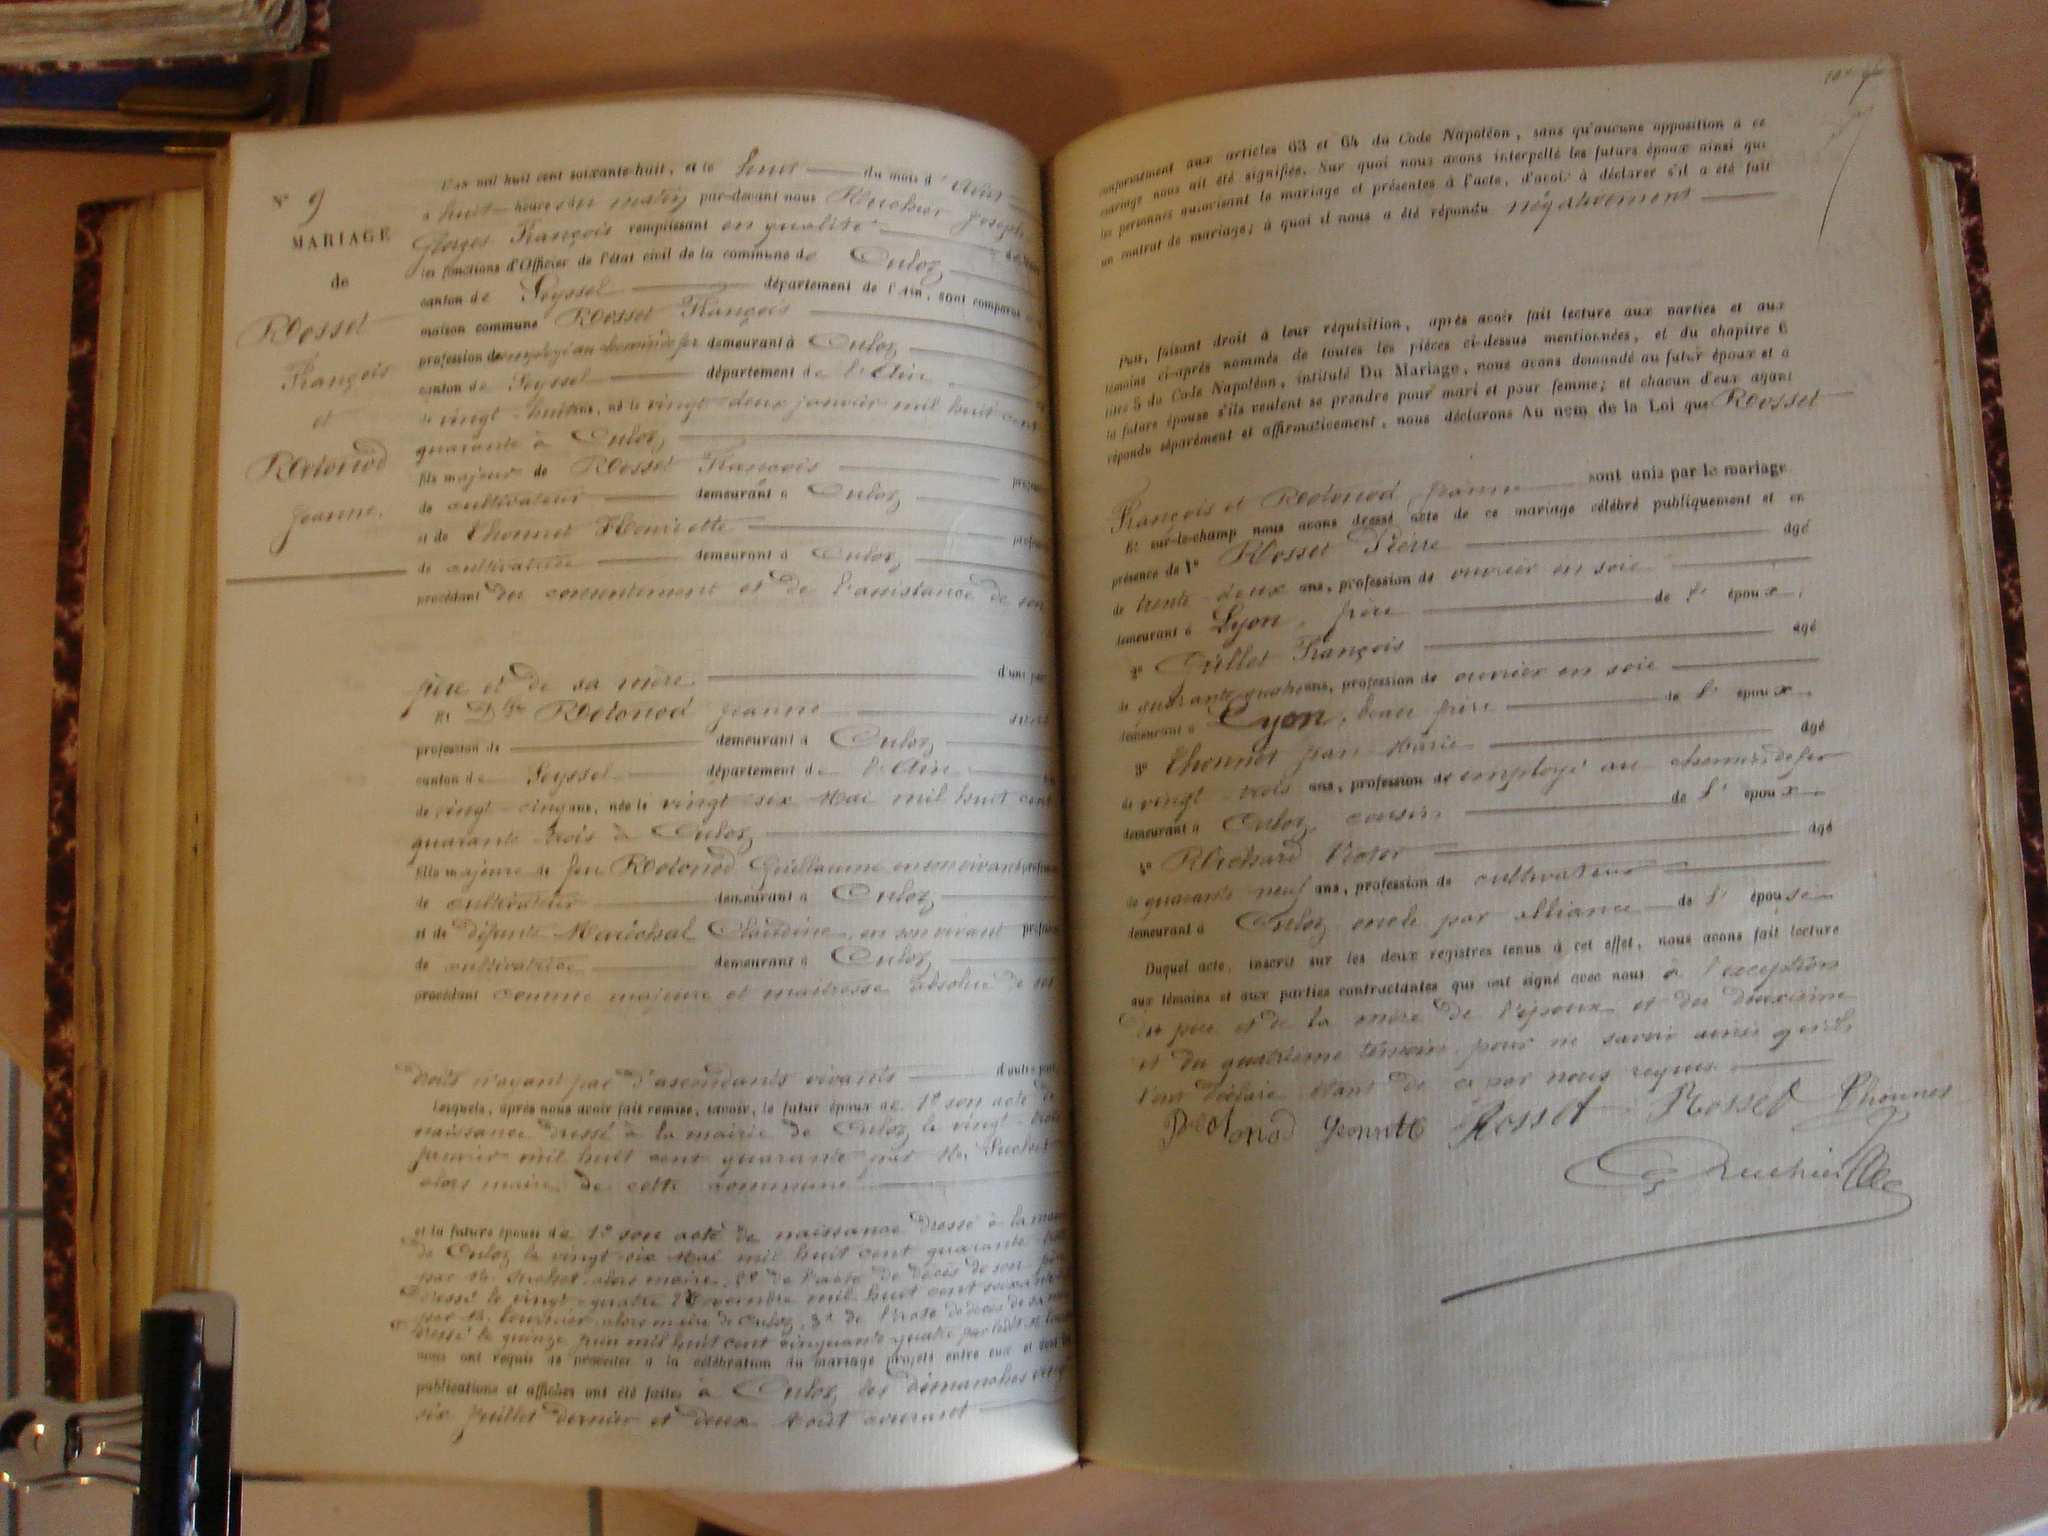 N° 9
MARIAGE
de
Rosset
François
et
Rolonod
Jeanne.
L'an mil huit cent soixante-huit, et le huit du mois d'Août
à huit heures du matin par-devant nous Ruchier Joseph
Georges François remplissant en qualité de
les fonctions d'Officier de l'état civil de la commune de Culoz
canton de Seyssel département de l'Ain, sont comparus
maison commune Rosset François
profession de employé au chemin de fer demeurant à Culoz
canton de Seyssel département de l'Ain
de vingt-huit ans, né le vingt-deux janvier mil huit cent
quarante à Culoz
fils majeur de Rosset François
de cultivateur demeurant à Culoz
et de Thonnet Henriette
de cultivatrice demeurant à Culoz
procédant du consentement et de l'assistance de son
père et de sa mère d'une part
Et Dlle Rolonod Jeanne
profession de demeurant à Culoz
canton de Seyssel département de l'Ain
de vingt-cinq ans, née le vingt six Mai mil huit cent
quarante trois à Culoz
fille majeure de feu Rolonod Guillaume en son vivant
de cultivateur demeurant à Culoz
et de défunte Maréchal Claudine, en son vivant
de cultivatrice demeurant à Culoz
procédant comme majeure et maitresse absolue de ses
droits n'ayant pas d'ascendants vivants d'autre part
Lesquels, après nous avoir fait remise, savoir, le futur époux de 1° son acte de
naissance dressé à la mairie de Culoz le vingt-trois
janvier mil huit cent quarante par Mr Suchet
alors maire de cette commune
et la future épouse de 1° son acte de naissance dressé à la mairie
de Culoz le vingt six Mai mil huit cent quarante trois
par Mr Suchet alors maire, 2° de l'acte de décès de son père
dressé le vingt-quatre Novembre mil huit cent soixante
par Mr alors maire de Culoz, 3° de l'acte de décès de sa mère
dressé le quinze juin mil huit cent cinquante quatre par
nous ont requis de procéder à la célébration du mariage projeté entre eux et dont les
publications et affiches ont été faites à Culoz les dimanches vingt
six Juillet dernier et deux Août courant
conformément aux articles 63 et 64 du Code Napoléon, sans qu'aucune opposition à ce
mariage nous ait été signifiée. Sur quoi nous avons interpellé les futurs époux ainsi que
les personnes autorisant le mariage et présentes à l'acte, d'avoir à déclarer s'il a été fait
un contrat de mariage; à quoi il nous a été répondu négativement
Puis, faisant droit à leur réquisition, après avoir fait lecture aux parties et aux
témoins ci-après nommés de toutes les pièces ci-dessus mentionnées, et du chapitre 6
titre 5 du Code Napoléon, intitulé Du Mariage, nous avons demandé au futur époux et à
la future épouse s'ils veulent se prendre pour mari et pour femme; et chacun d'eux ayant
répondu séparément et affirmativement, nous déclarons Au nom de la Loi que Rosset
François et Rolonod Jeanne sont unis par le mariage.
Et sur-le-champ nous avons dressé acte de ce mariage célébré publiquement et en
présence de 1° Rosset Pierre âgé
de trente-deux ans, profession de ouvrier en soie
demeurant à Lyon, frère de l'époux.
2° Gullet François âgé
de quarante quatre ans, profession de ouvrier en soie
demeurant à Lyon, beau frère de l'époux.
3° Thonnet Jean Marie âgé
de vingt-trois ans, profession de employé au chemin de fer
demeurant à Culoz cousin, de l'époux.
4° Richard Victor âgé
de quarante neuf ans, profession de cultivateur
demeurant à Culoz oncle par alliance de l'épouse
Duquel acte, inscrit sur les deux registres tenus à cet effet, nous avons fait lecture
aux témoins et aux parties contractantes qui ont signé avec nous à l'exception
du père et de la mère de l'époux et du deuxième
et du quatrième témoin pour ne savoir ainsi qu'ils
l'ont déclaré étant de ce par nous requis.
Rolonod Jeannette Rosset Rosset Thonnet
Ruchier